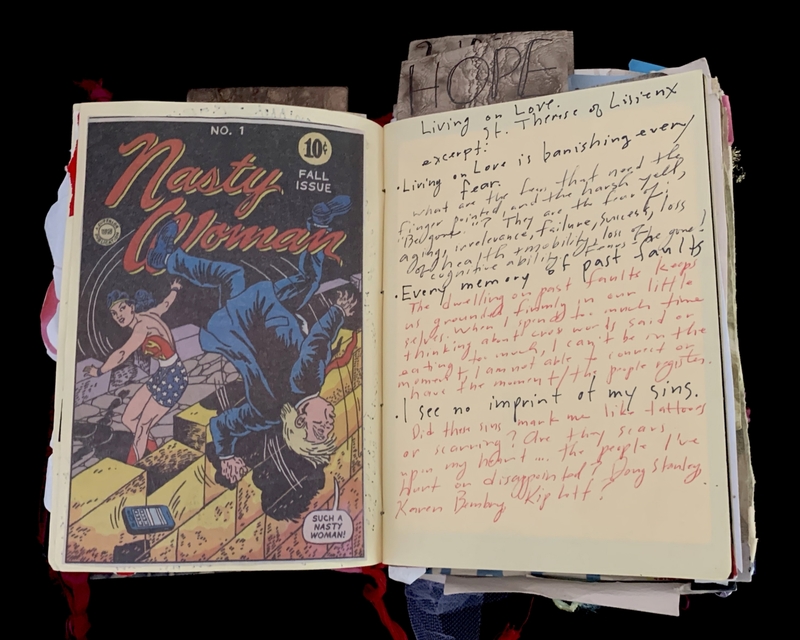 NO. 1
10¢
FALL
ISSUE
Nasty
Woman
SUCH A
NASTY
WOMAN!
HOPE
Living on Love.
St. Therese of Lisieux
excerpt:
· Living on Love is banishing every
fear.
What are the fears that need the
finger pointed and the harsh yell,
"Begone"? They are the fear of:
aging, irrelevance, failure, success, loss
of health + mobility, loss of
cognitive ability. Fears be gone!
· Every memory of past faults
The dwelling on past faults keeps
us grounded firmly in our little
selves. When I spend to much time
thinking about over words said or
eating to much, I can't be in the
moment, I am not able to convert or
have the moment/the people register.
· I see no imprint of my sins.
Did these sins mark me like tattoos
or scarring? Are they scars
upon my heart ... the people I've
hurt or disappointed? Doug Stanley
Karen Kip